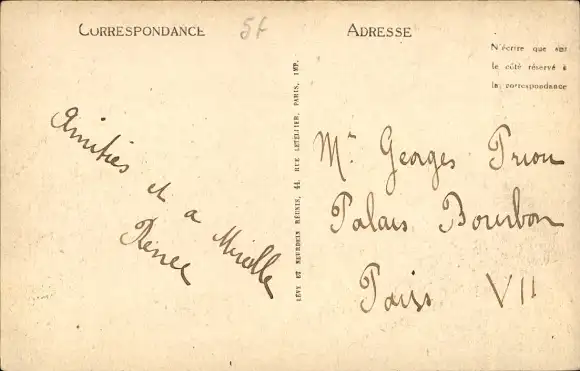 CORRESPONDANCE
5f
ADRESSE
N'écrire que sur
le côté réservé à
la correspondance
Amitiés et a Mireille
Renée
LÉVY ET NEURDEIN RÉUNIS, 44, RUE LETELLIER, PARIS, IMP.
Mr Georges Priou
Palais Bourbon
Paris VII